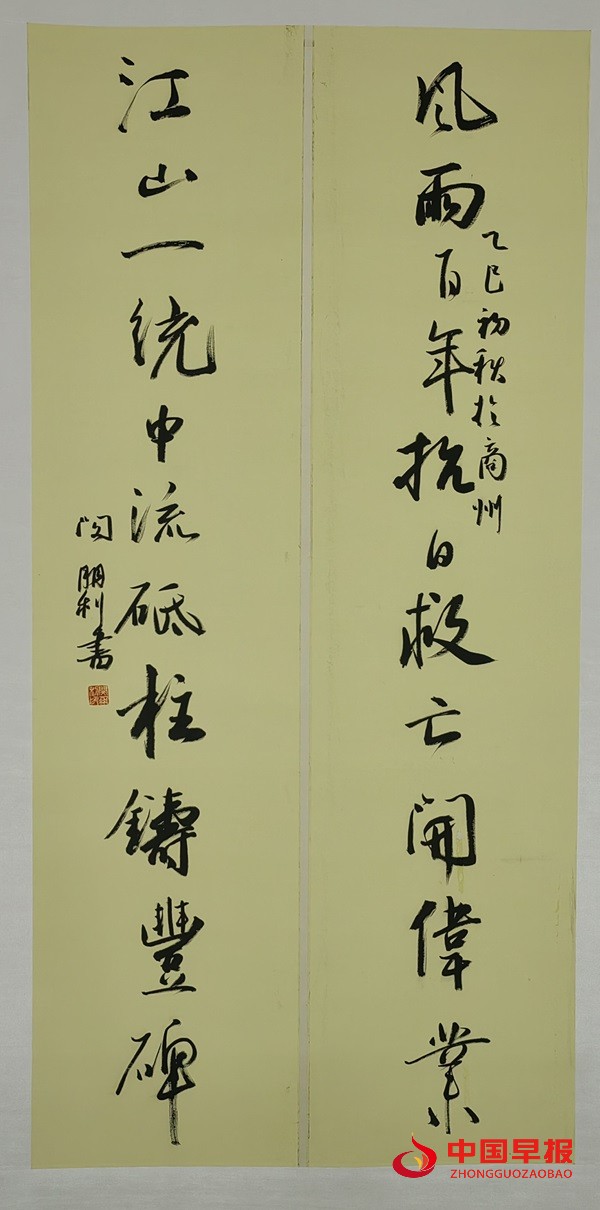 風雨百年抗日救亡開偉業
乙巳初秋於商州
江山一統中流砥柱鑄豐碑
閆朋利書
中国早报
ZHONGGUOZAOBAO